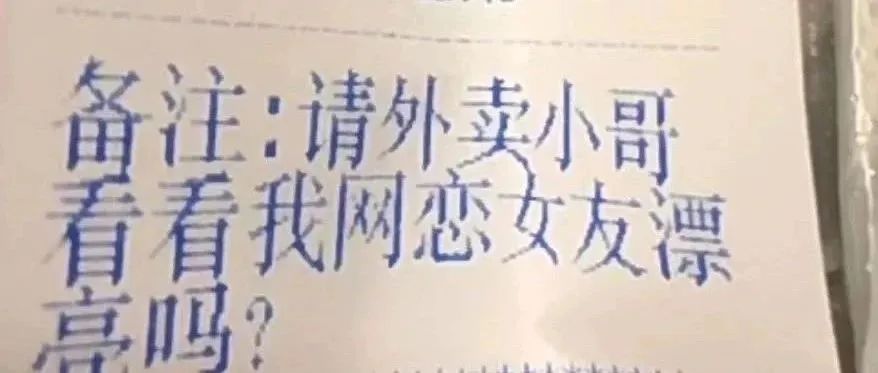 备注:请外卖小哥
看看我网恋女友漂
亮吗?